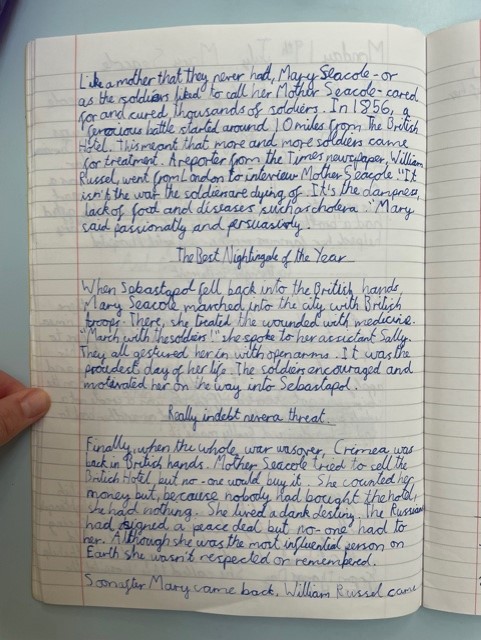 Like a mother that they never had, Mary Seacole - or
as the soldiers liked to call her Mother Seacole - cared
for and cured thousands of soldiers. In 1856, a
ferocious battle started around 10 miles from The British
Hotel. This meant that more and more soldiers came
for treatment. A reporter from the Times newspaper, William
Russel, went from London to interview Mother Seacole. "It
isn't the war the soldier are dying of. It's the dampness,
lack of food and diseases such as cholera." Mary
said passionally and persuasivly.
The Best Nightingale of the Year
When Sebastapol fell back into the British hands,
Mary Seacole marched into the city with British
troops. There, she treated the wounded with medicine.
"March with the soldiers!" she spoke to her assistant Sally.
They all gestured her in with open arms. It was the
proudest day of her life. The soldiers encouraged and
motovated her on the way into Sebastapol.
Really indebt never a threat.
Finally, when the whole war was over, Crimea was
back in British hands. Mother Seacole tried to sell the
British Hotel, but no-one would buy it. She counted her
money but, because nobody had bought the hotel,
she had nothing. She lived a dank destiny. The Russians
had signed a peace deal but no-one had to
her. Although she was the most influential person on
Earth she wasn't respected or remembered.
Soon after Mary came back, William Russel came